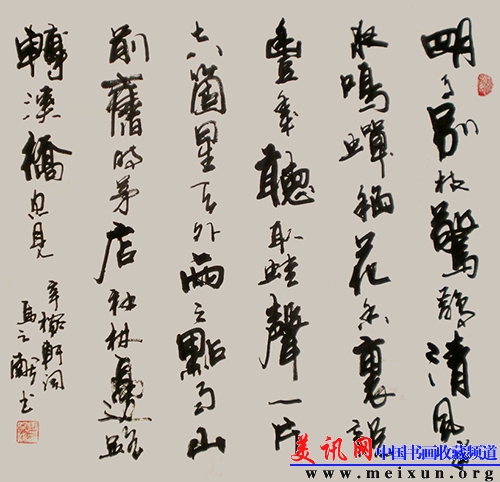 明月別枝驚鵲清風半
夜鳴蟬稻花香裏說
豐年聽取蛙聲一片
七八箇星天外兩三點雨山
前舊時茅店社林邊路
轉溪橋忽見
辛稼軒詞
書
美讯网 中国书画收藏频道
www.meixun.org